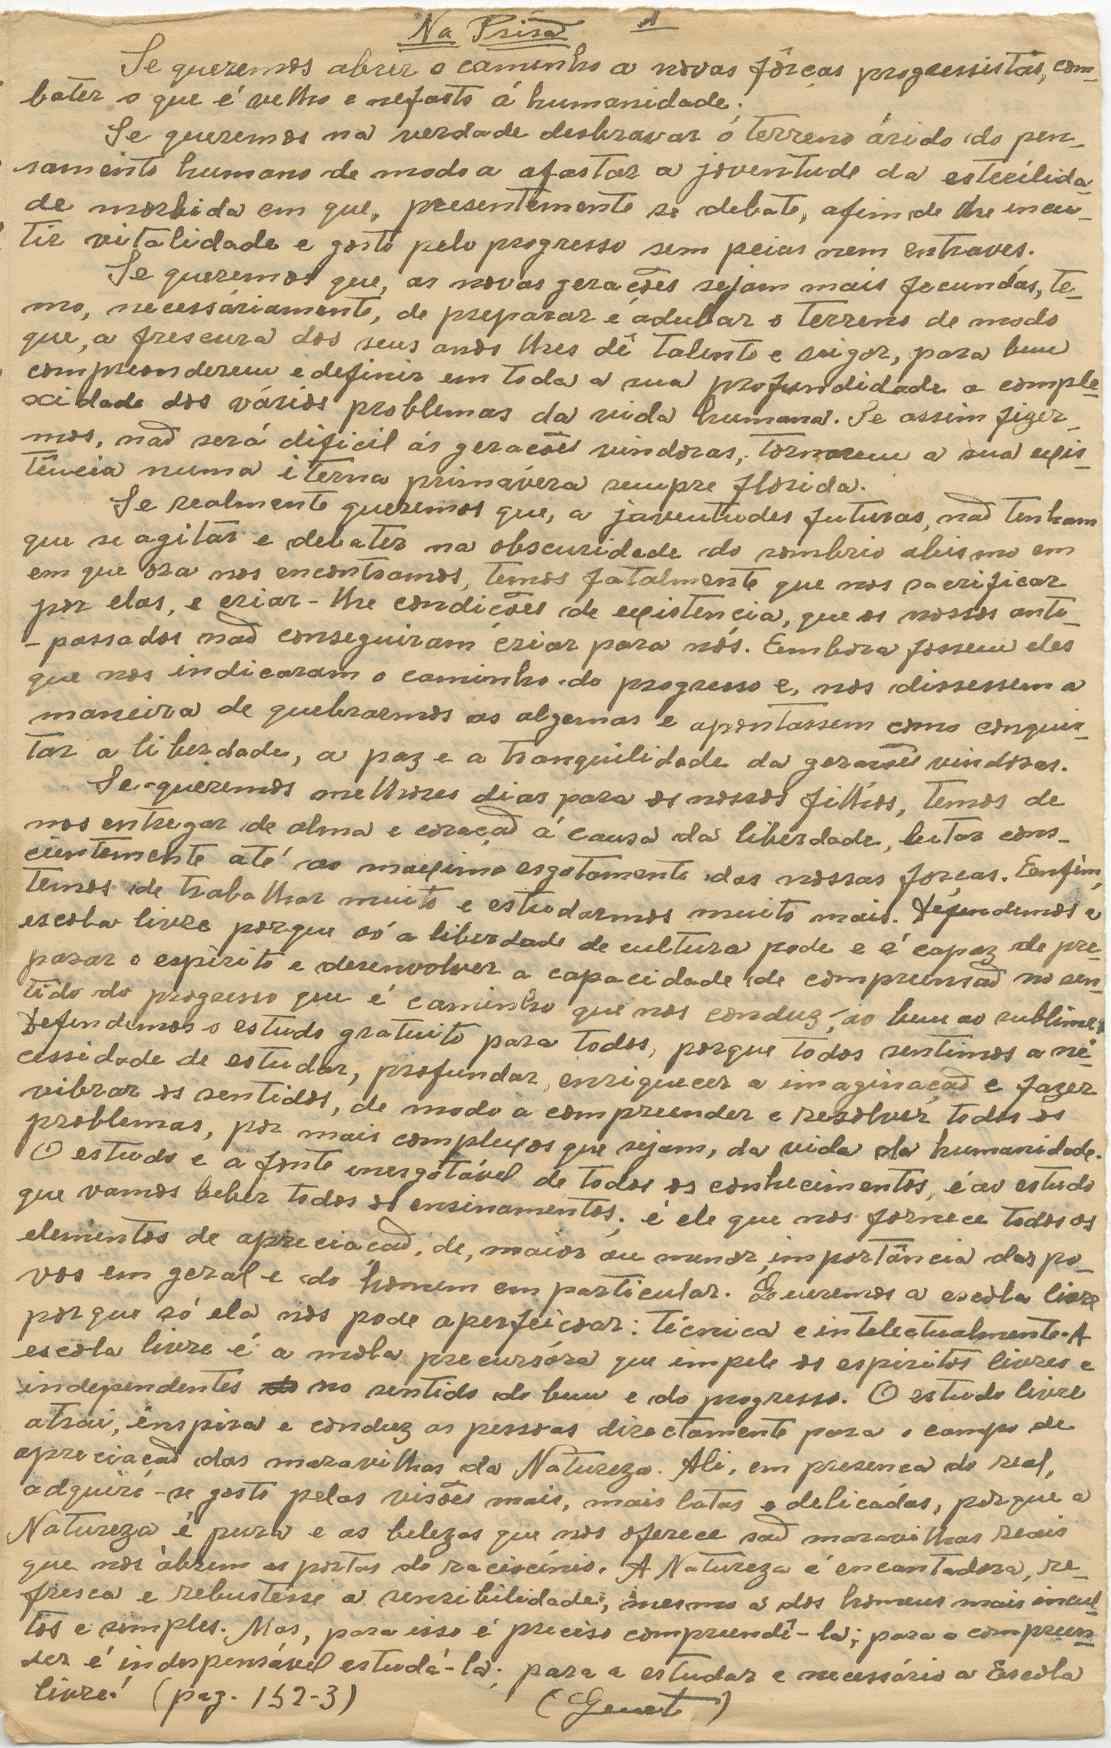 Na Prisão A
Se queremos abrir o caminho a novas fôrças progressistas, com-
bater o que é velho e nefasto á humanidade.
Se queremos na verdade desbravar o terreno árido do pen-
samento humano de modo a afastar a joventude da esterilida-
de morbida em que, presentemente se debate, afim de lhe incu-
tir vitalidade e gosto pelo progresso sem peias nem entraves.
Se queremos que, as novas gerações sejam mais fecundas, te-
mo, necessáriamente, de preparar e adubar o terreno de modo
que, a frescura dos seus anos lhes dê talento e vigor, para bem
compreenderem e definir em toda a sua profundidade a comple-
xidade dos vários problemas da vida humana. Se assim fizer-
mos, não será dificil ás gerações vindoras, tornarem a sua exis-
tência numa iterna primávera sempre florida.
Se realmente queremos que, a javentudes futuras, não tenham
que se agitar e debater na obscuridade do sombrio abismo em
em que ora nos encontramos, temos fatalmente que nos sacrificar
por elas, e criar-lhe condições de existencia, que os nossos ante-
-passados não conseguiram criar para nós. Embora fossem eles
que nos indicaram o caminho do progresso e, nos dissessem a
maneira de quebrarmos as algemas e apontassem como conquis-
tar a liberdade, a paz e a tranquilidade da geração vindoras.
Se queremos melhores dias para os nossos filhos, temos de
nos entregar de alma e coração á causa da liberdade, lutar cons-
cientemente até ao maximo esgotamento das nossas forças. Emfim,
temos de trabalhar muito e estudarmos muito mais. Defendemos a
escola livre porque só a liberdade de cultura pode e é capaz de pre-
parar o espirito e desenvolver a capacidade de compreensão no sen-
tido do progresso que é caminho que nos conduz, ao bem ao sublime.
Defendemos o estudo gratuito para todos, porque todos sentimos a ne-
cessidade de estudar, profundar, enriquecer a imaginação e fazer
vibrar os sentidos, de modo a compreender e resolver todos os
problemas, por mais complexos que sejam, da vida da humanidade.
O estudo e a fonte inesgotável de todos os conhecimentos, é ao estudo
que vamos beber todos os ensinamentos; é ele que nos fornece todos os
elementos de apreciação, de, maior ou menor, importância dos po-
vos em geral e do homem em particular. Queremos a escola livre
porque só ela nos pode aperfeiçoar: técnica e intelectualmente. A
escola livre é a mola precursóra que impele os espiritos livres e
independentes no sentido do bem e do progresso. O estudo livre
atrai, inspira e conduz as pessoas directamente para o campo de
apreciação das maravilhas da Natureza. Ali, em presença do real,
adquire-se gosto pelas visões mais, mais latas e delicadas, porque a
Natureza é pura e as belezas que nos oferece são maravilhas reais
que nos abrem as portas do raciocínio. A Natureza é encantadora, re-
fresca e rebustesse a sensibilidade, mesmo a dos homens mais incul-
tos e simples. Mas, para isso é preciso compreendê-la; para a compreen-
der é indespensável estudá-la; para a estudar e necessário a Escola
livre! (pag. 152-3)